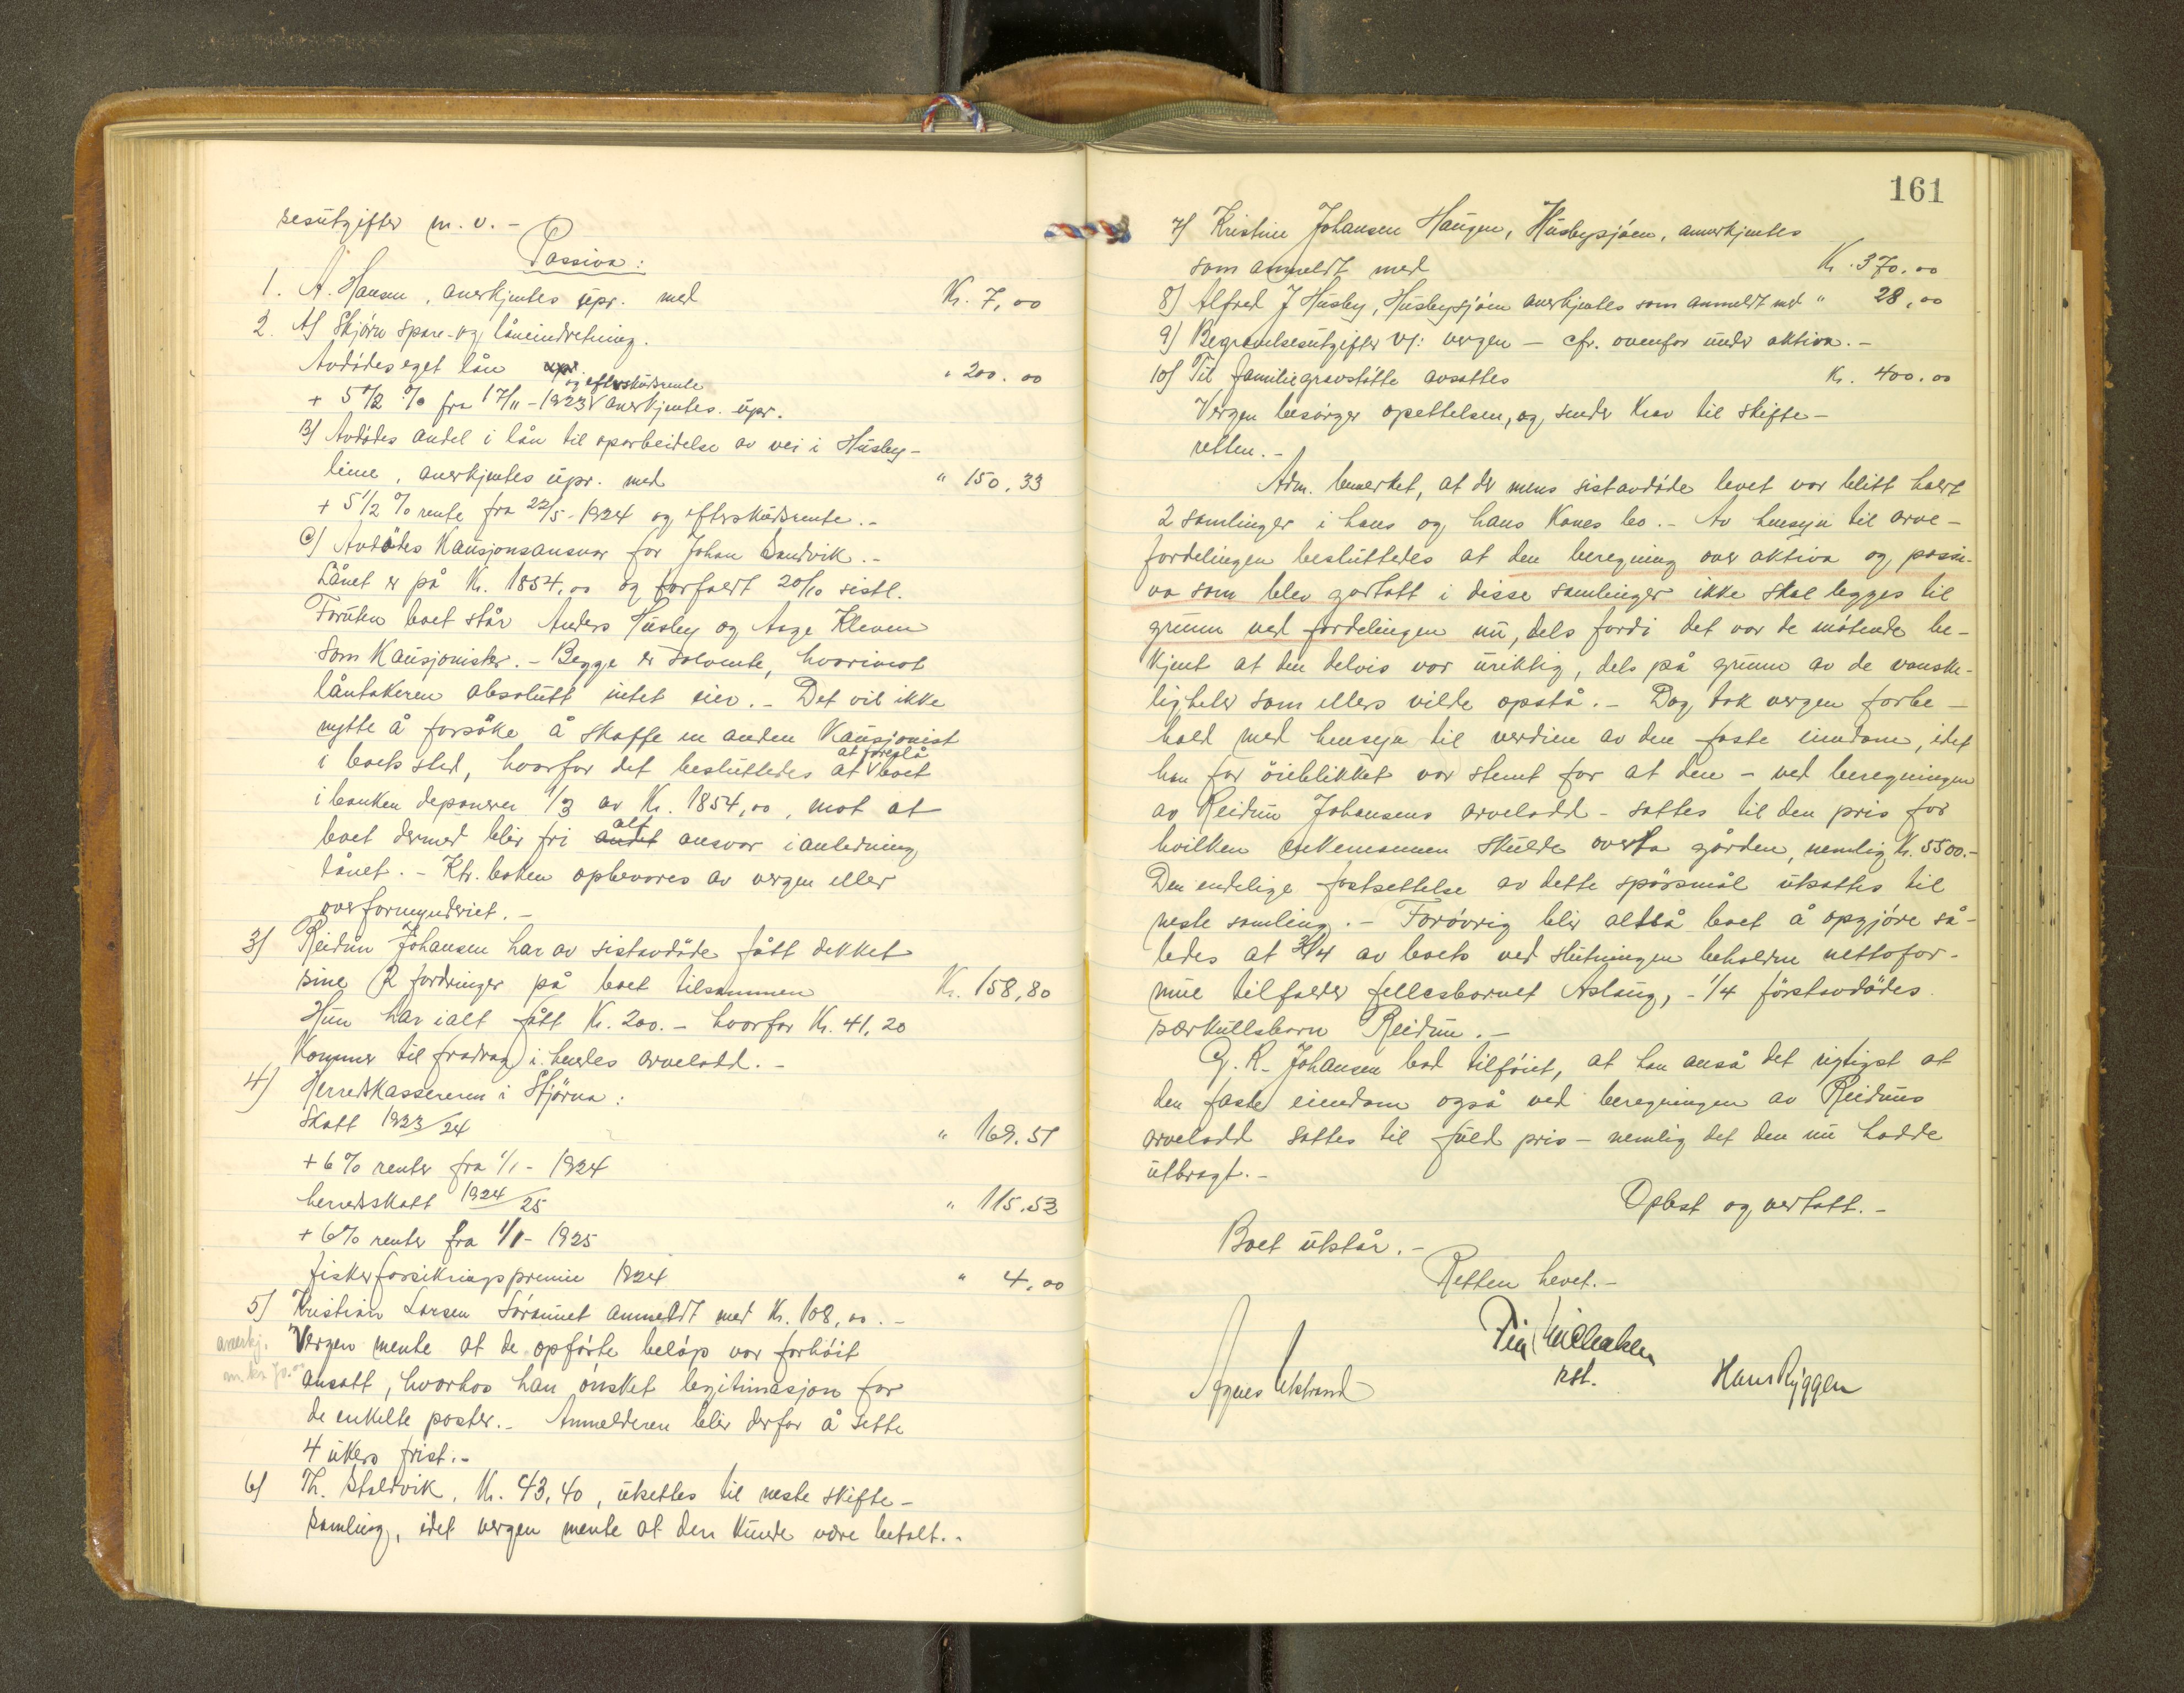 sesutgifter m. v. -
Passiva:
1. A. Hansen, anerkjentes upr. med Kr. 7,00
2. A) Skjørn spare- og låneindretning.
Avdødes eget lån upr. " 200.00
og efterskudsrente
+ 5 1/2 % fra 17/11 - 1923 anerkjentes upr.
B) Avdødes andel i lån til oparbeidelse av vei i Husby-
liene, anerkjentes upr. med " 150,33
+ 5 1/2 % rente fra 22/5 - 1924 og efterskudsrente. -
C) Avdødes Kausjonsansvar for Johan Sandvik. -
Lånet er på Kr. 1854,00 og forfaldt 20/10 sistl.
Foruten boet står Anders Husby og Aage Kleven
som Kausjonister. - Begge er solvente, hvorimot
låntakeren absolutt intet eier. - Det vil ikke
nytte å forsøke å skaffe en anden Kausjonist
at foreslå
i boets sted, hvorfor det besluttedes at boet
i banken deponerer 1/3 av Kr. 1854,00, mot at
alt
boet dermed blir fri andet ansvar i anledning
lånet. - Ktr. boken opbevares av vergen eller
overformynderiet. -
3) Reidun Johansen har av sistavdøde fått dekket
sine 2 fordringer på boet tilsammen Kr. 158,80
Hun har ialt fått Kr. 200. - hvorfor Kr. 41,20
Kommer til fradrag i hendes arvelodd. -
4) Herredskassereren i Stjørna:
Skatt 1923/24 " 169.51
+ 6% renter fra 1/1 - 1924
herredsskatt 1924/25 " 115.53
+ 6% renter fra 1/1 - 1925
fiskerforsikringspremie 1924 " 4,00
5) Kristian Larsen Søraunet anmeldt med Kr. 108,00. -
anerkj. Vergen mente at de opførte beløp var forhøit
m. kr. 70.00 ansatt, hvorhos han ønsket legitimasjon for
de enkelte poster. - Anmelderen blir derfor å sette
4 ukers frist. -
6) Th. Staldvik, Kr. 43,40, utsettes til neste skifte-
samling, idet vergen mente at den kunde være betalt. -
161
7) Kristine Johansen Haugen, Husbysjøen, anerkjentes
som anmeldt med Kr. 370.00
8) Alfred J Husby, Husbysjøen anerkjentes som anmeldt med " 28,00
9) Begravelsesutgifter v/: vergen - cfr. ovenfor under aktiva. -
10) Til familiegravstøtte avsattes Kr. 400.00
Vergen besørger opsettelsen, og sender Krav til skifte-
retten. -
Adm. bemerket, at der mens sistavdøde levet var blitt holdt
2 samlinger i hans og hans Kones bo. - Av hensyn til arve-
fordelingen besluttedes at den beregning over aktiva og passi-
va som blev gjortatt i disse samlinger ikke skal legges til
grunn ved fordelingen nu, dels fordi det var de møtende be-
kjent at den delvis var uriktig, dels på grunn av de vanske-
ligheter som ellers vilde opstå. - Dog tok vergen forbe-
hold med hensyn til verdien av den faste eiendom, idet
han for øieblikket var stemt for at den - ved beregningen
av Reidun Johansens arvelodd - sattes til den pris for
hvilken enkemannen skulde overta gården, nemlig Kr. 5500.-
Den endelige fastsettelse av dette spørsmål utsattes til
neste samling. - Forøvrig blir altså boet å opgjøre så-
ledes at 3/4 av boets ved slutningen beholdne nettofor-
mue tilfalder fellesbarnet Aslaug, - 1/4 førstavdødes
særkullsbarn Reidun. -
G. R. Johansen bad tilføiet, at han anså det rigtigst at
den faste eiendom også ved beregningen av Reiduns
arvelodd sattes til fuld pris - nemlig det den nu hadde
utbragt. -
Oplest og vertatt. -
Boet utstår. -
Retten hevet. -
Agnes Utstrand
rst.
Hans Ryggen